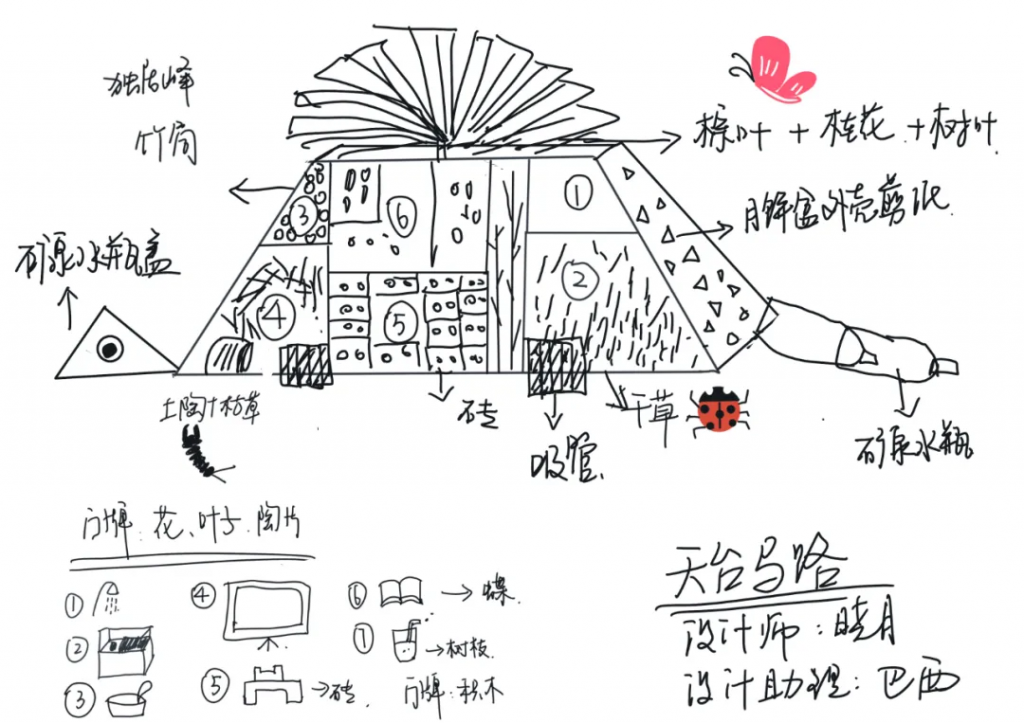 独居蜂
竹筒
棕叶+桂花+树叶
月饼盒外壳剪纸
矿泉水瓶盖
① ② ③ ④ ⑤ ⑥
土陶+枯草
砖
吸管
干草
矿泉水瓶
门牌:花、叶子、陶片
①
②
③
④
⑤ →砖
⑥ →蝶
⑦ →树枝
门牌:积木
天台马路
设计师:晓月
设计助理:巴西